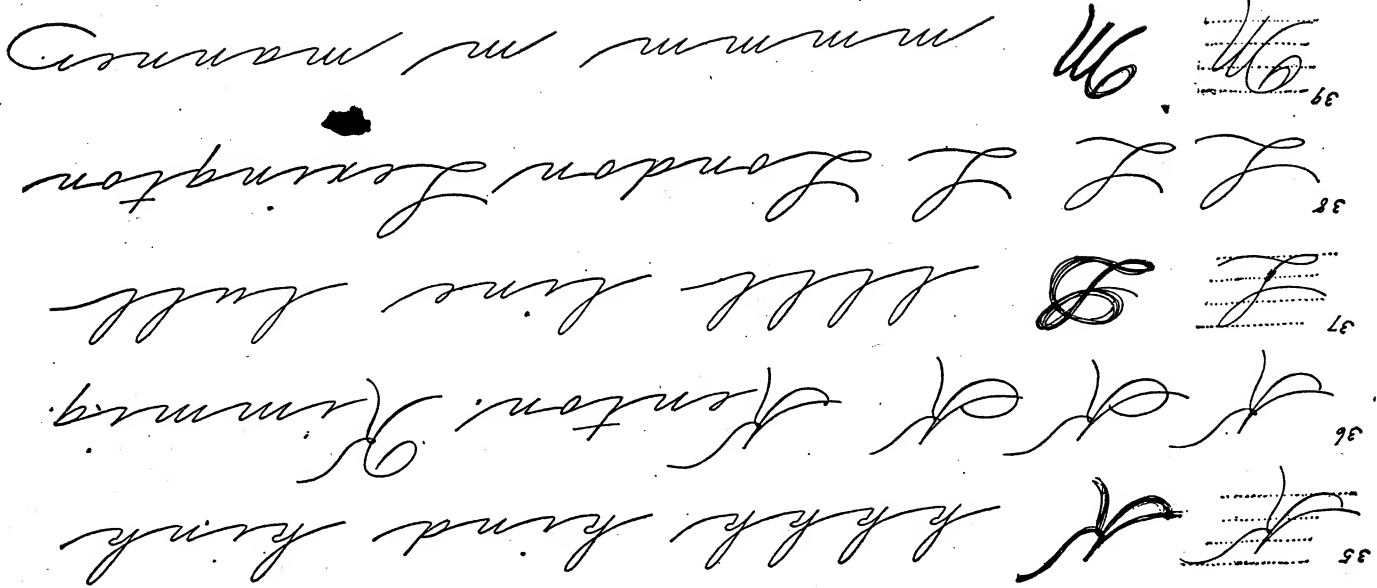 35 K K kkkk kind kink
36 K K K Kenton. Kimmig.
37 L L llll line lull
38 L L L London Lexington
39 M M mmmm m manner